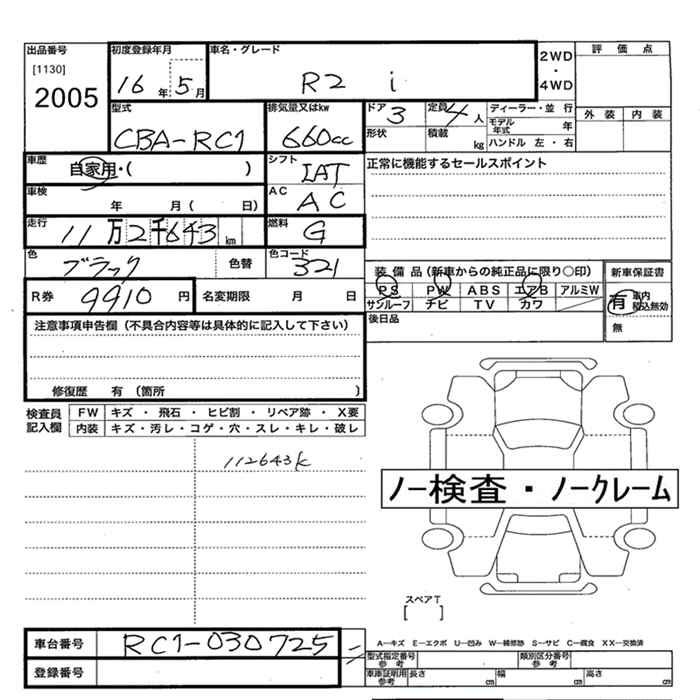 出品番号 初度登録年月 車名・グレード 2WD ・ 4WD 評価点
[1130]
2005 16年 5月 R2 i
型式 排気量又はkw ドア 3 定員 4人 ディーラー・並行 外装 内装
CBA-RC1 660cc 形状 積載 kg モデル年式 年
ハンドル 左・右
車歴 自家用・( ) シフト IAT 正常に機能するセールスポイント
車検 年 月( 日) AC AC
走行 11万2千643km 燃料 G
色 ブラック 色替 色コード 321
装備品(新車からの純正品に限り○印) 新車保証書
PS PW ABS エアB アルミW 有 車内 積込無効
サンルーフ ナビ TV カワ 無
R券 9910円 名変期限 月 日 後日品
注意事項申告欄(不具合内容等は具体的に記入して下さい)
修復歴 有(箇所 )
検査員 記入欄 FW キズ・飛石・ヒビ割・リペア跡・X要
内装 キズ・汚レ・コゲ・穴・スレ・キレ・破レ
112643k
ノー検査・ノークレーム
スペアT
[ ]
車台番号 RC1-030725
A−キズ E−エクボ U−凹み W−補修跡 S−サビ C−腐食 XX−交換済
型式指定番号 参考 類別区分番号 参考
登録番号 車庫証明用 参考 長さ cm 幅 cm 高さ cm